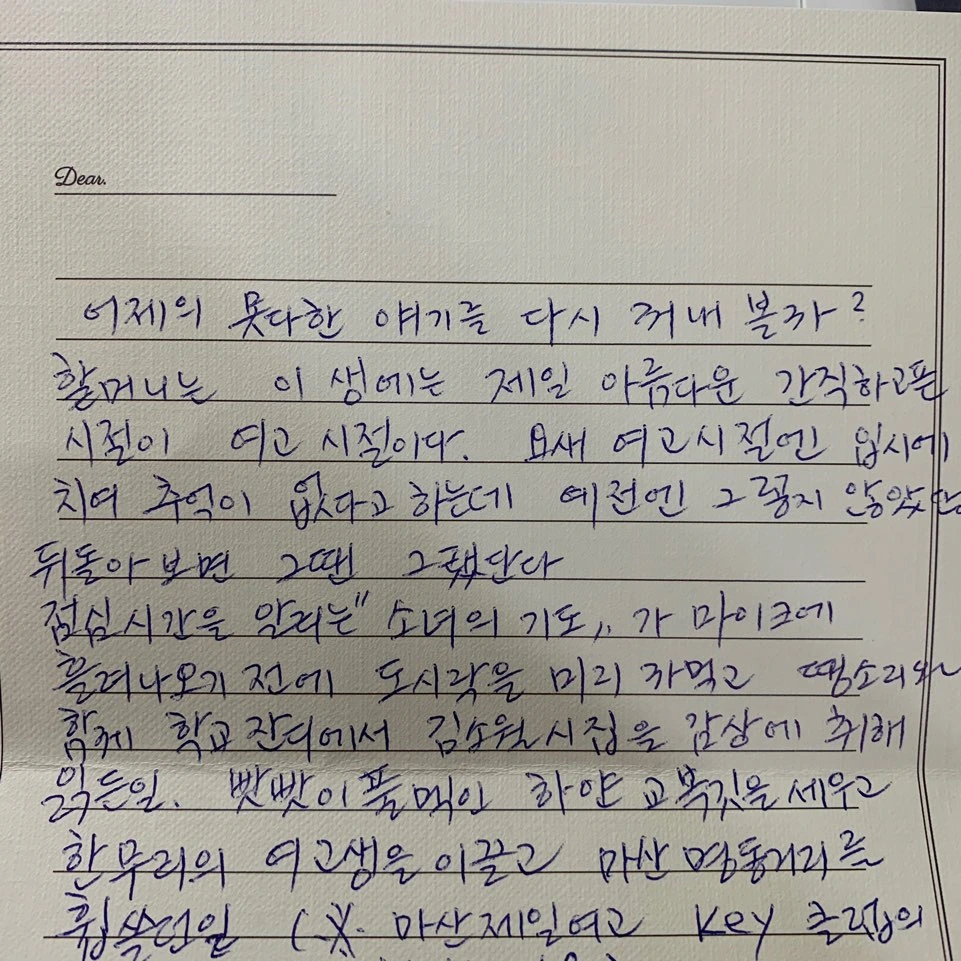 Dear.
어제의 못다한 얘기를 다시 꺼내 볼까?
할머니는 이 생에는 제일 아름다운 간직하고픈
시절이 여고 시절이다. 요새 여고시절엔 입시에
치여 추억이 없다고 하는데 예전엔 그렇지 않았단
뒤돌아 보면 그땐 그랬단다
점심시간을 알리는 "소녀의 기도,, 가 마이크에
흘려나오기 전에 도시락을 미리 까먹고 땡소리와
함께 학교 잔디에서 김소월시집을 감상에 취해
읽든일. 빳빳이 풀먹인 하얀 교복깃을 세우고
한무리의 여고생을 이끌고 마산 명동거리를
휩쓸던일 (※. 마산제일여고 Key 클럽의